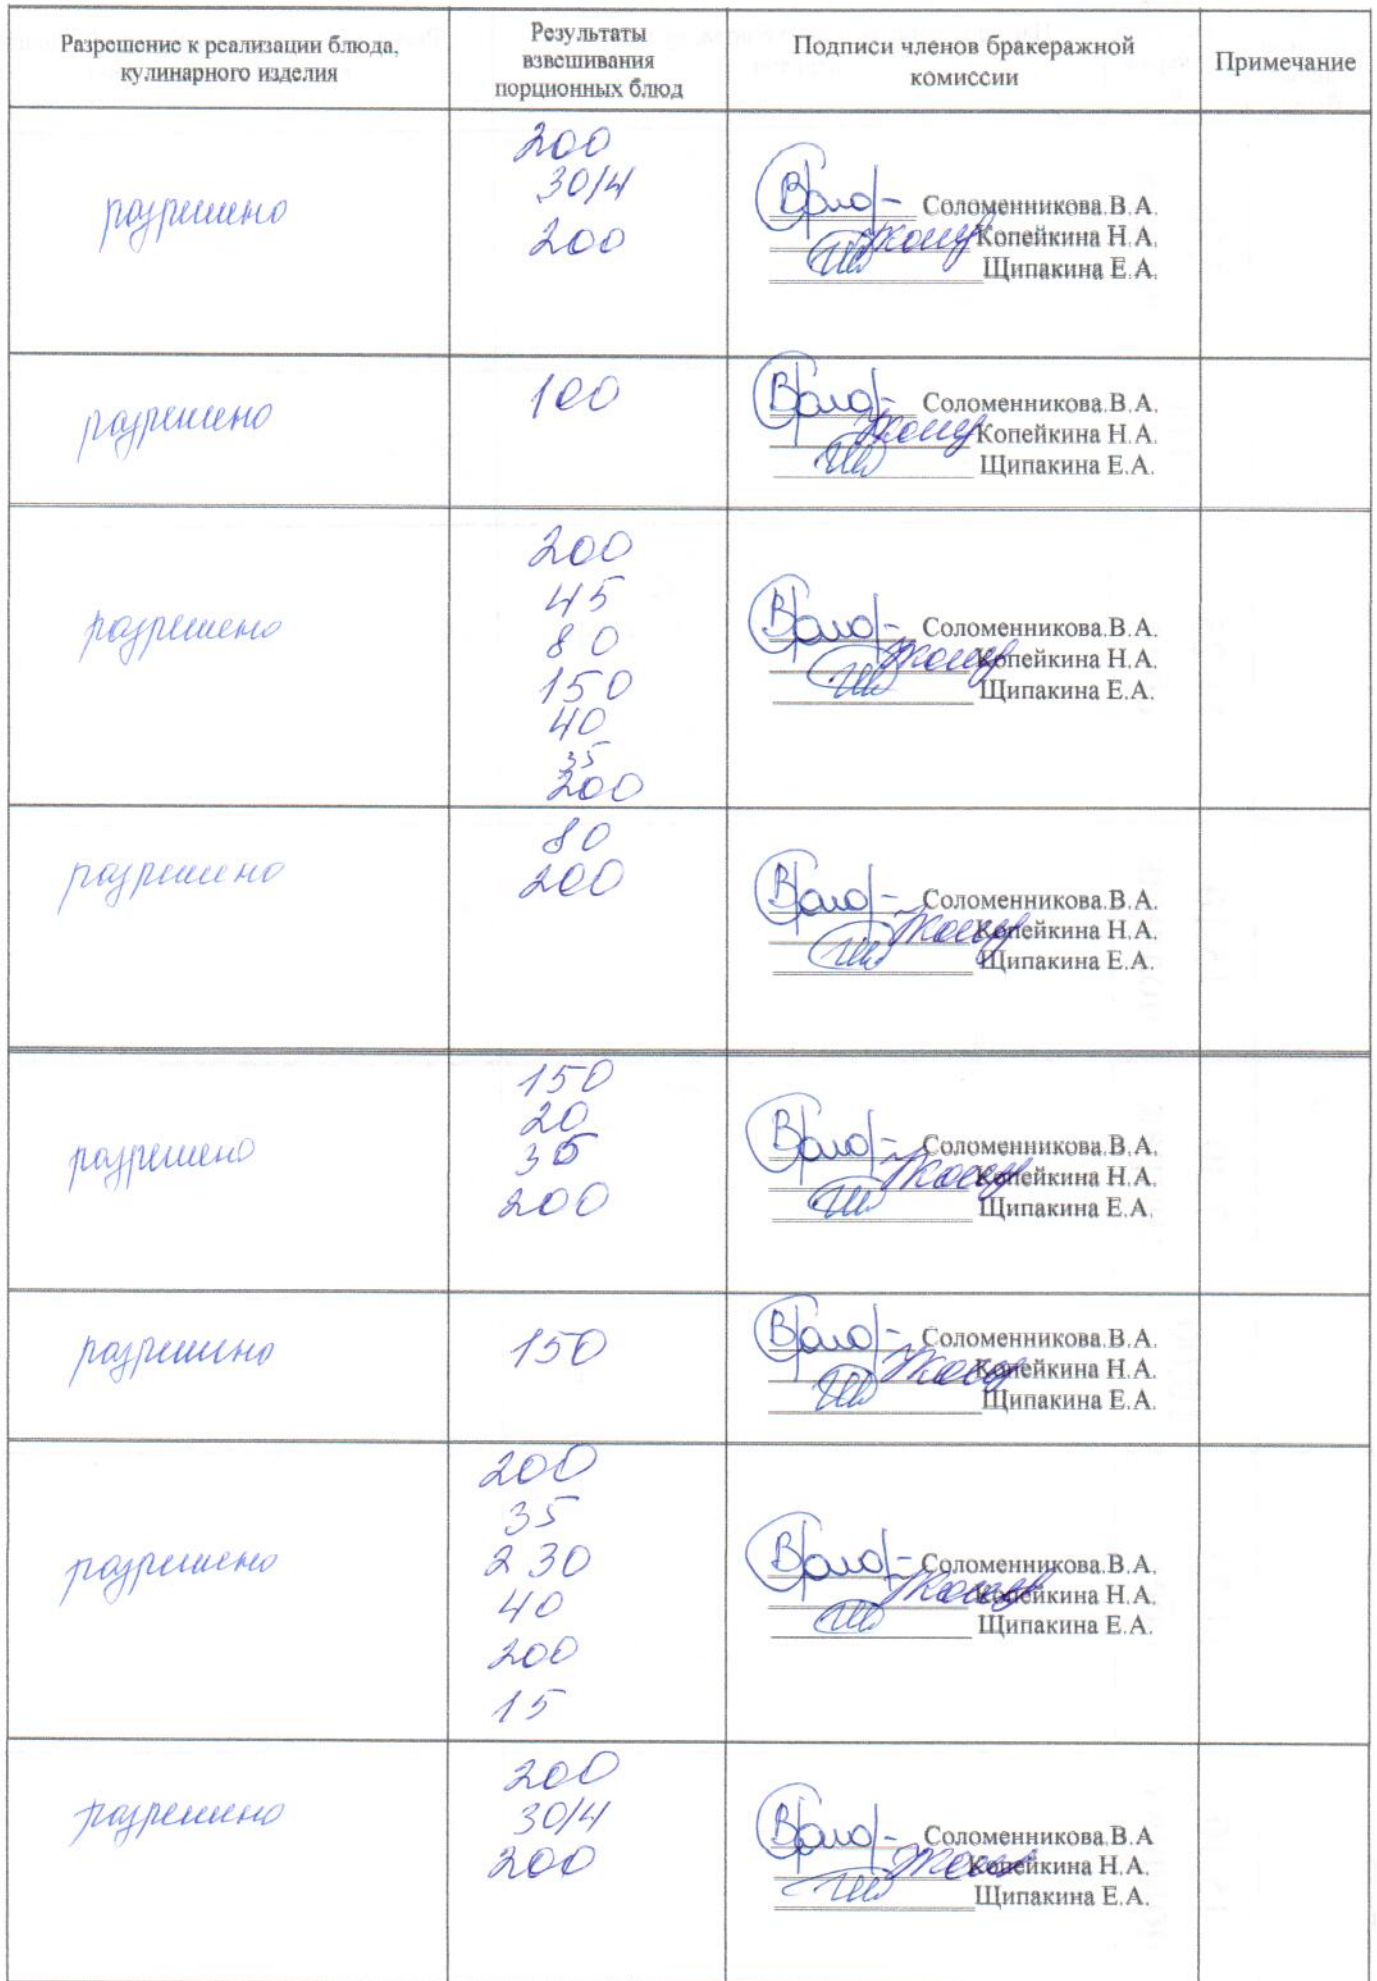 Разрешение к реализации блюда,
кулинарного изделия
Результаты
взвешивания
порционных блюд
Подписи членов бракеражной
комиссии
Примечание
разрешено
200
30/4
200
Соломенникова.В.А.
Копейкина Н.А.
Щипакина Е.А.
разрешено
100
Соломенникова.В.А.
Копейкина Н.А.
Щипакина Е.А.
разрешено
200
45
80
150
40
35
200
Соломенникова.В.А.
Копейкина Н.А.
Щипакина Е.А.
разрешено
80
200
Соломенникова.В.А.
Копейкина Н.А.
Щипакина Е.А.
разрешено
150
20
35
200
Соломенникова.В.А.
Копейкина Н.А.
Щипакина Е.А.
разрешено
150
Соломенникова.В.А.
Копейкина Н.А.
Щипакина Е.А.
разрешено
200
35
230
40
200
15
Соломенникова.В.А.
Копейкина Н.А.
Щипакина Е.А.
разрешено
200
30/4
200
Соломенникова.В.А
Копейкина Н.А.
Щипакина Е.А.